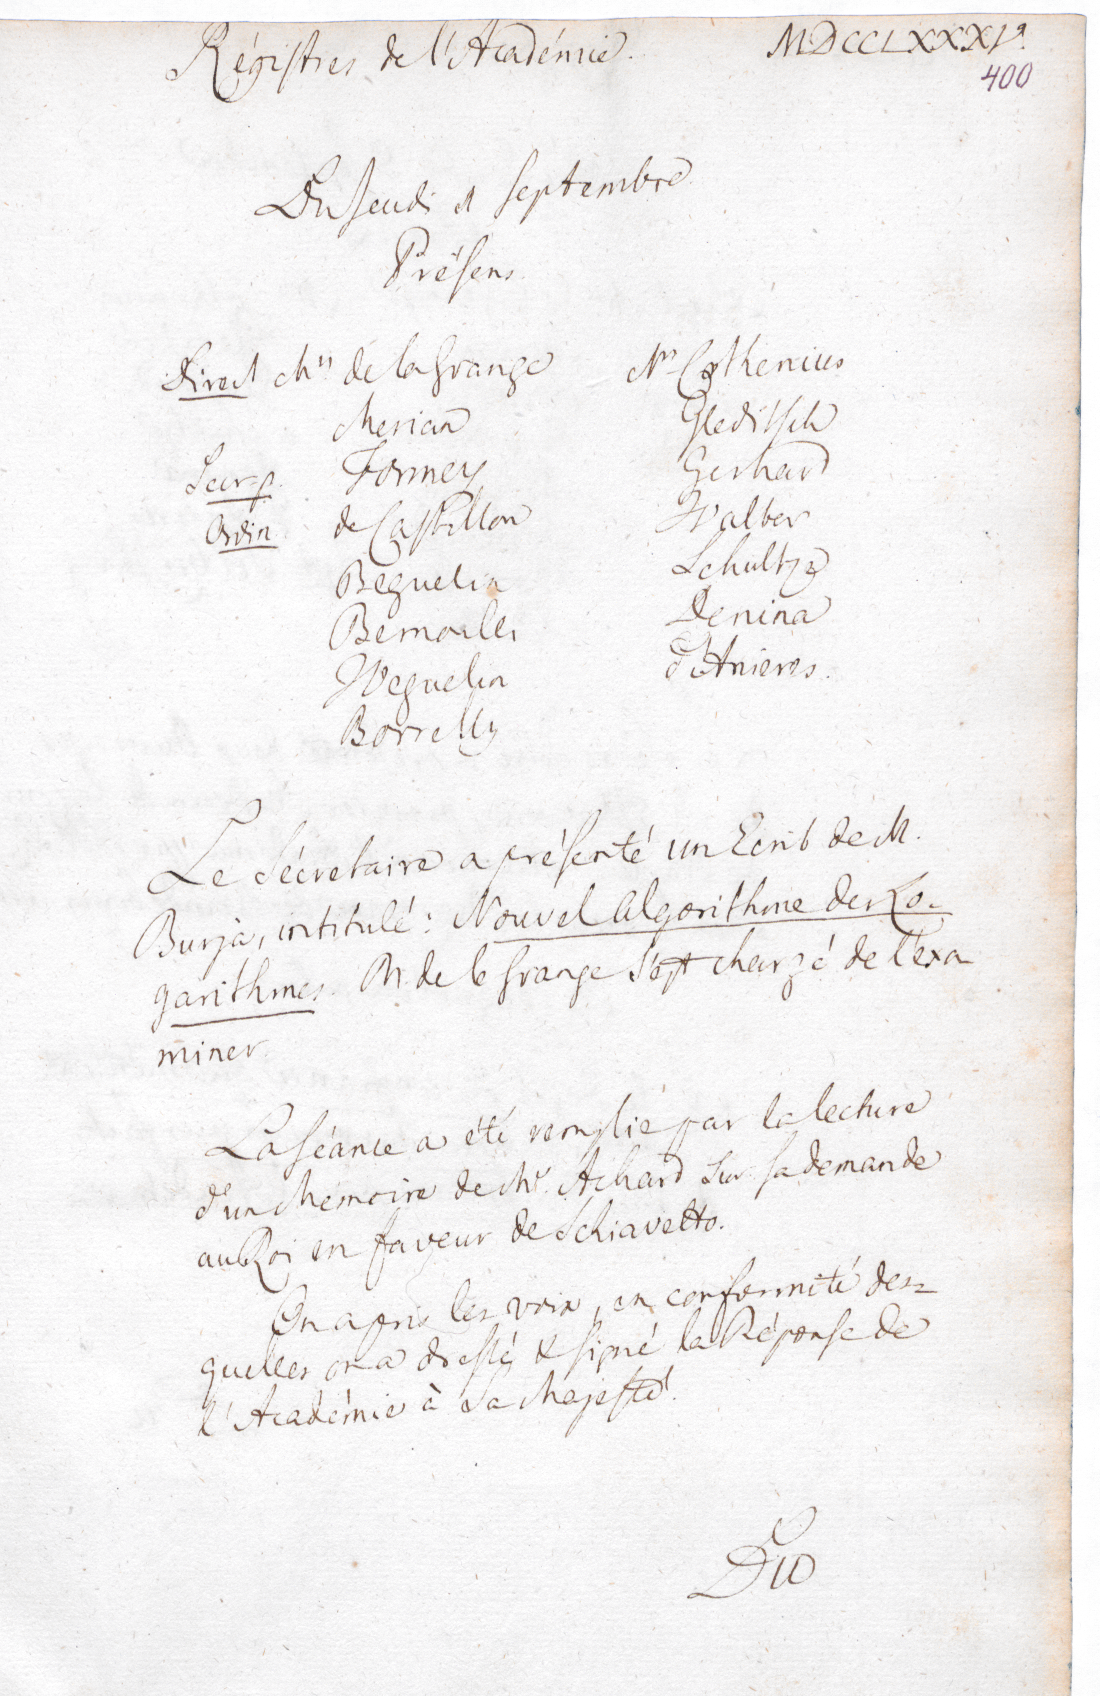 Régistres de l'Académie. MDCCLXXXV.
400
Du Jeudi 1 Septembre
Présens.
Direct Mrs de la Grange
Merian
Secr. p. Formey
Ordin. de Castillon
Beguelin
Bernoulli
Weguelin
Borrelly
Mrs Cothenius
Gleditsch
Gerhard
Walter
Schultze
Denina
d'Anieres.
Le Sécretaire a présenté un Ecrit de M.
Burja, intitulé: Nouvel Algorithme des Lo-
garithmes. M. de la Grange s'est chargé de l'exa
miner.
La Séance a été remplie par la lecture
d'un Mémoire de Mr. Achard sur sa demande
au Roi en faveur de Schiavetto.
On a pris les voix, en conformité des=
quelles on a dressé & signé la Réponse de
l'Académie à Sa Majesté.
Du